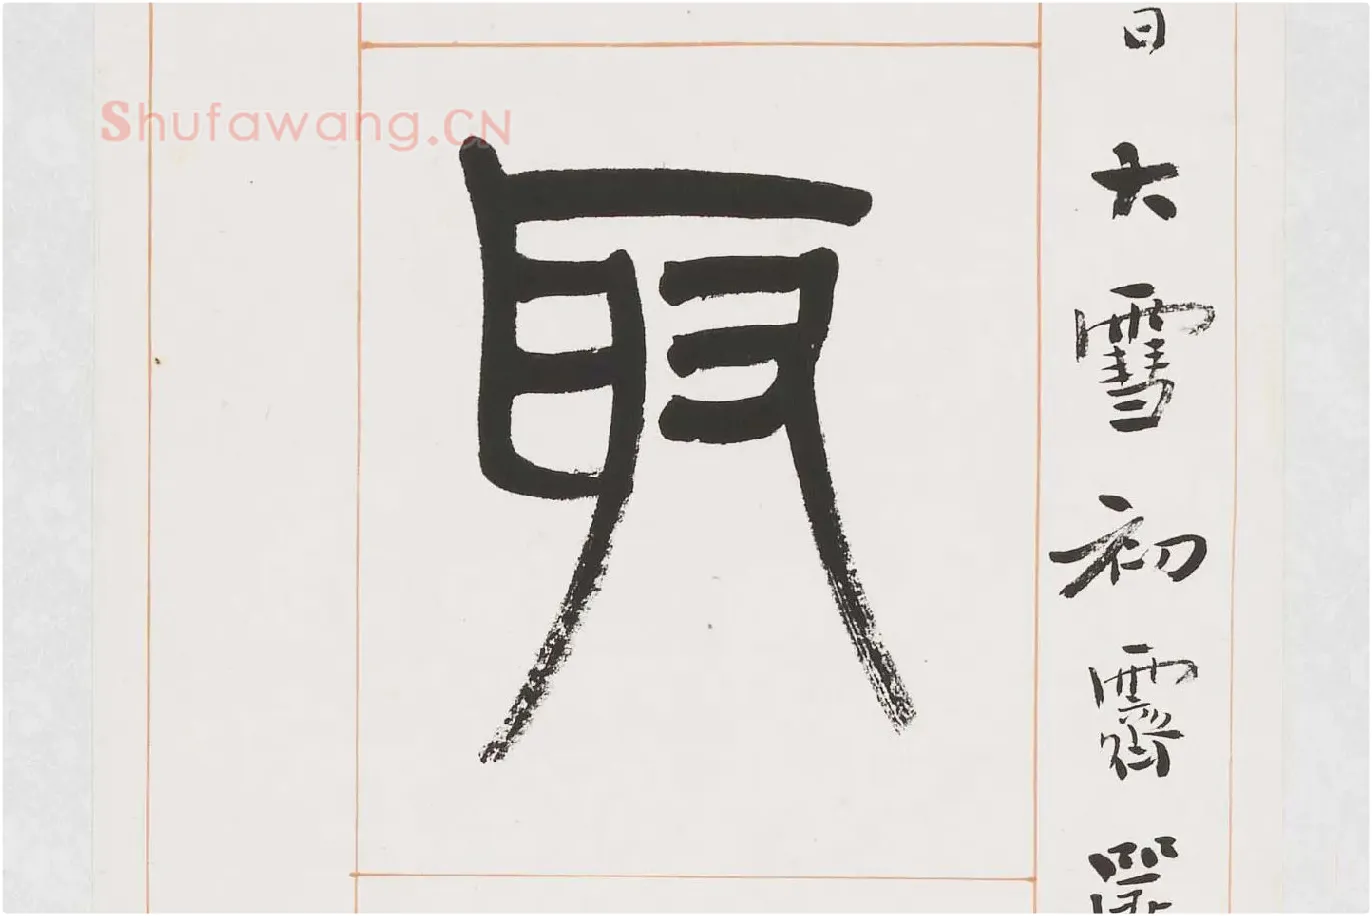 Shufawang.CN
日大雪初霽
取